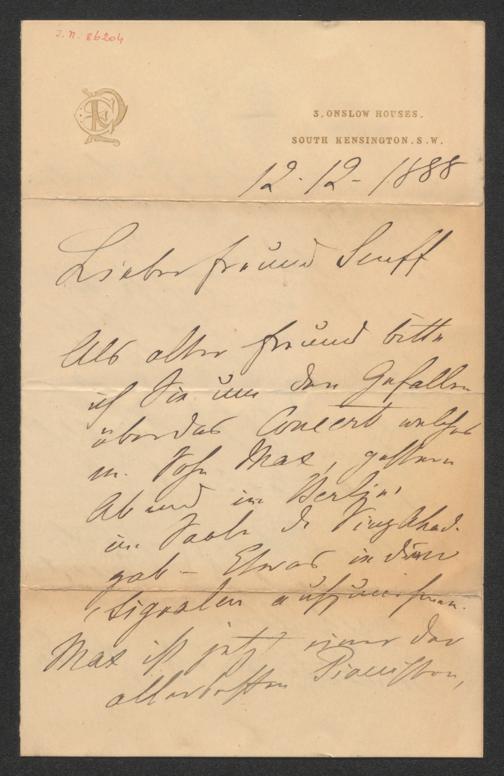 I.N. 86204
3, ONSLOW HOUSES.
SOUTH KENSINGTON. S.W.
12-12-1888
Lieber Freund Senff
Als alter Freund bitte
ich Sie um den Gefallen
über das Concert welches
m. Sohn Max, gestern
Abend in Berlin,
im Saale d. Singakad.
gab – Etwas in den
Signalen aufzunehmen.
Max ist jetzt einer der
allerbesten Pianisten,